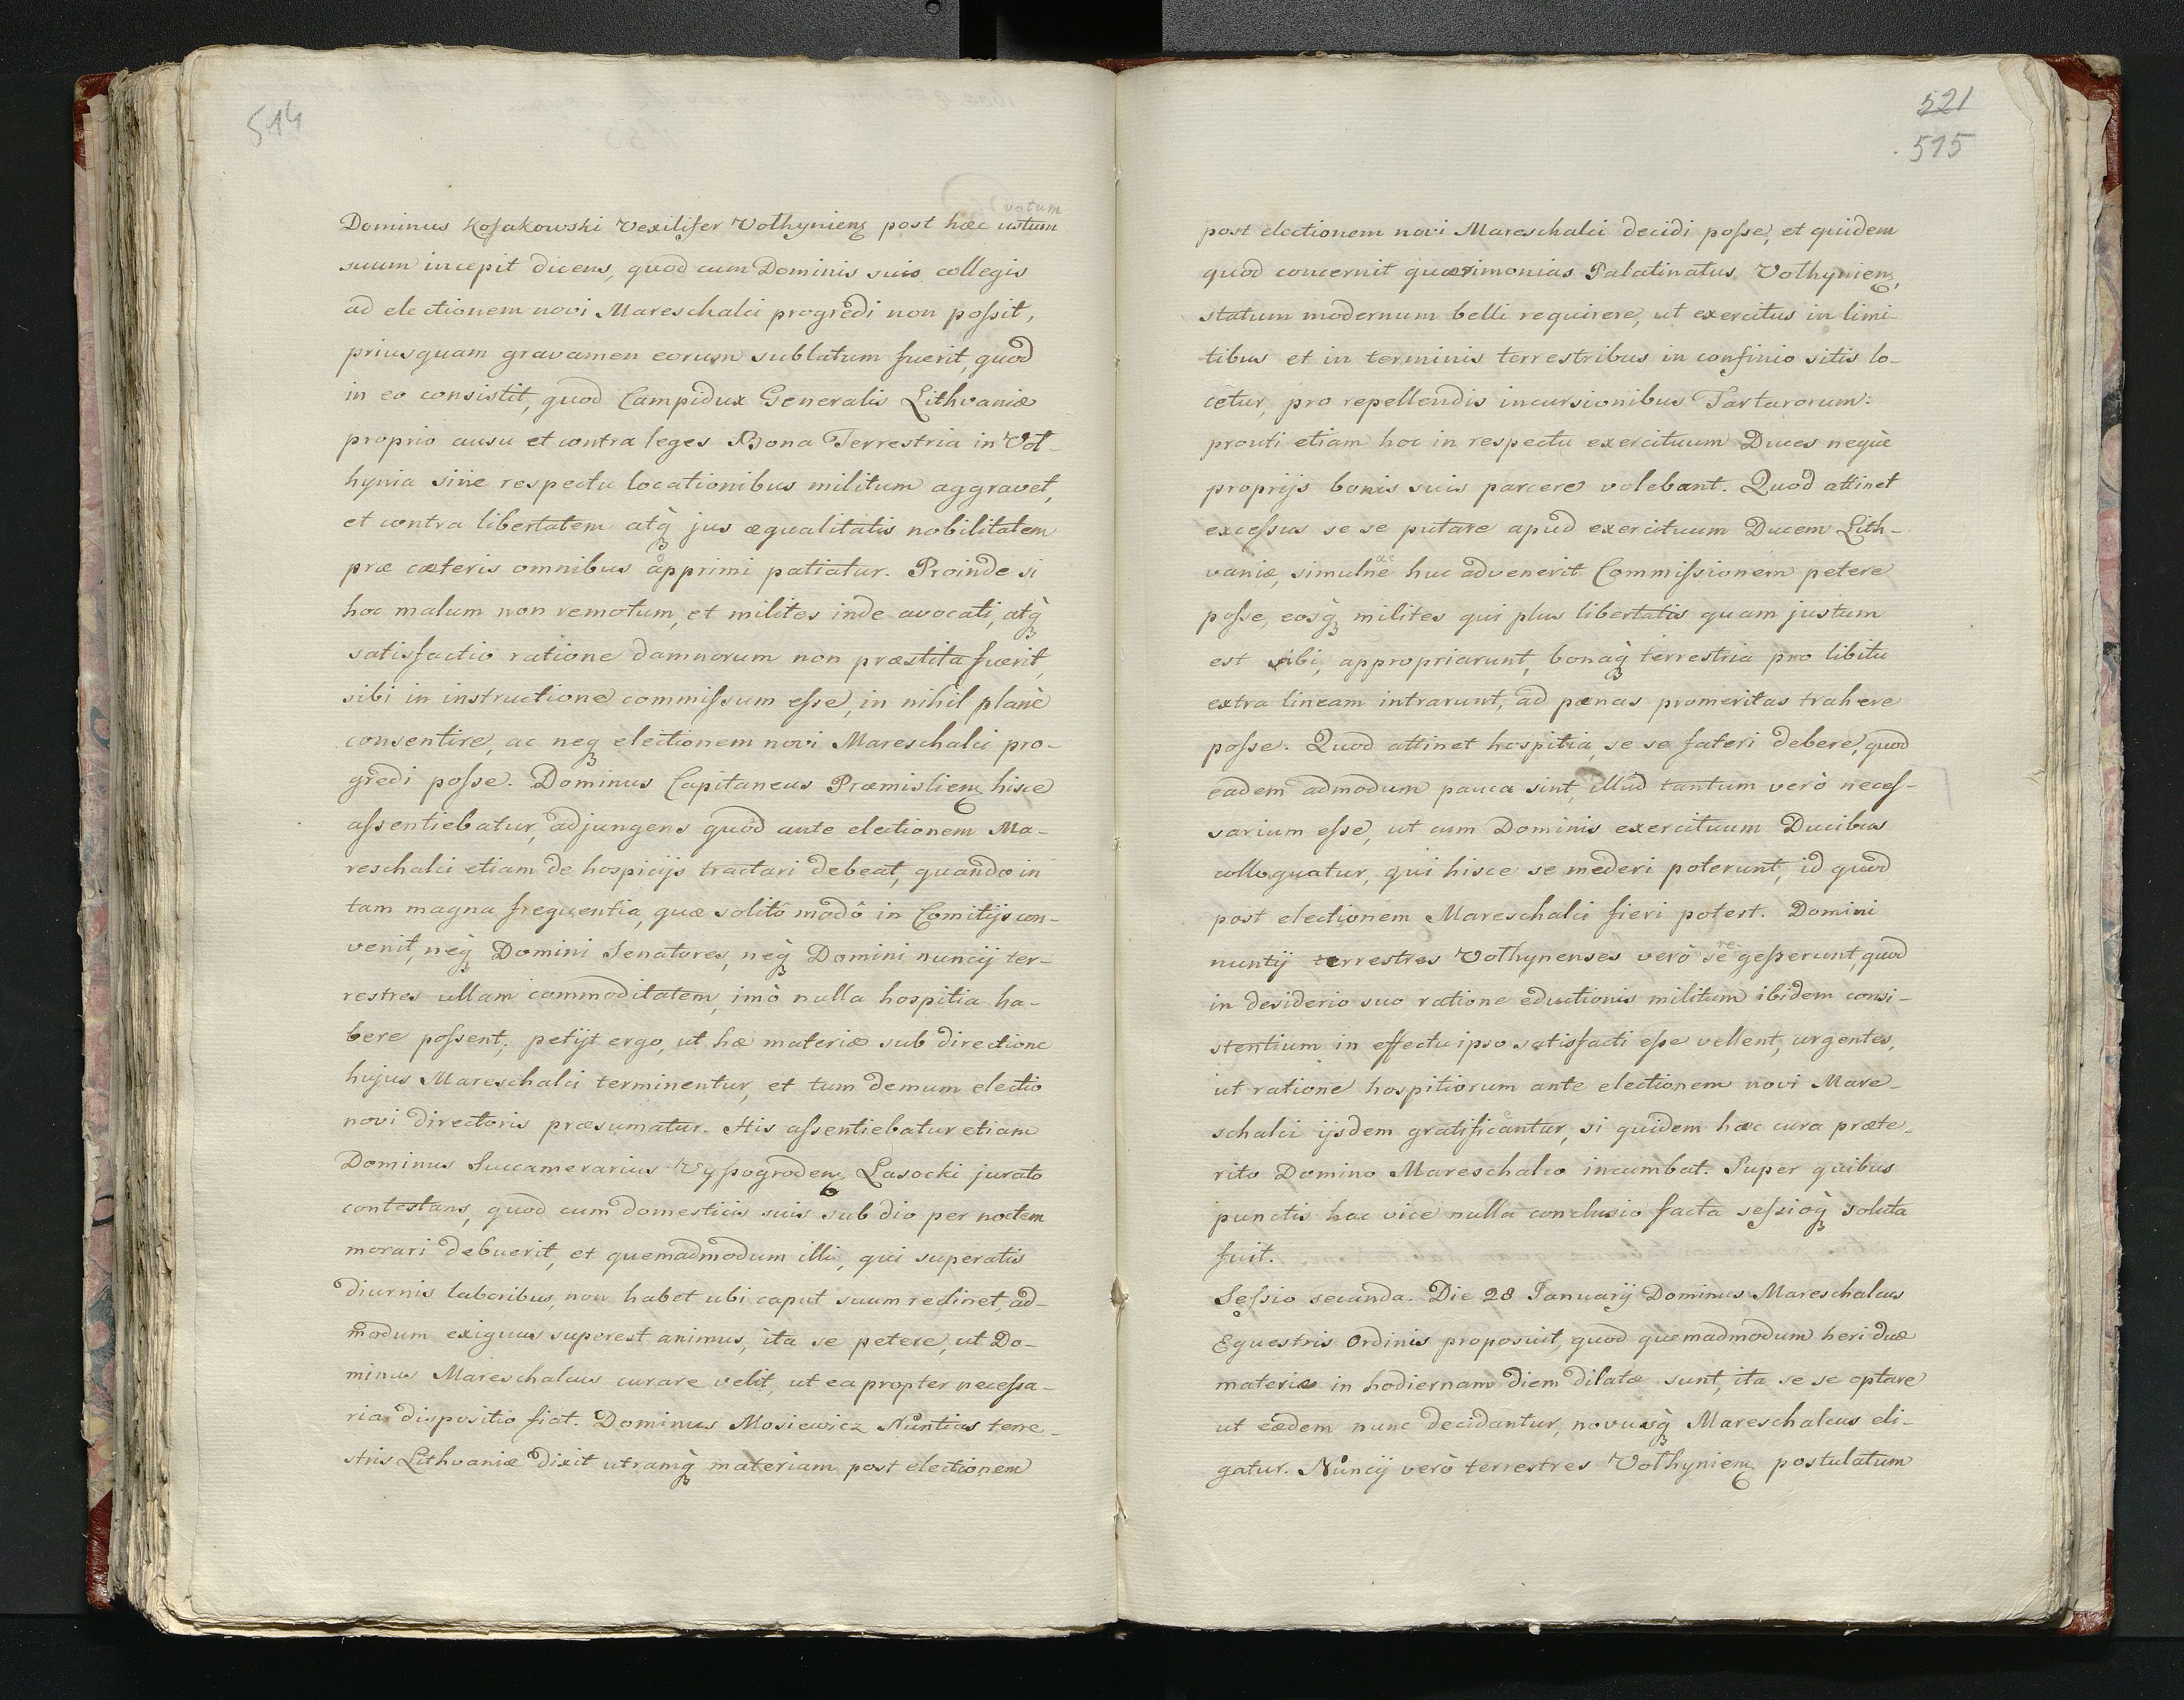 514
votum
Dominus Kosakowski Vexilifer Volhyniens post hæc ustum
suum incepit dicens, quod cum Dominis suis collegis
ad electionem novi Mareschalci progredi non poſsit,
priusquam gravamen eorum sublatum fuerit, quod
in eo consistit, quod Campidux Generalis Lithvaniæ
proprio ausu et contra leges Bona Terrestria in Vol-
hynia sine respectu locationibus militum aggravet,
et contra libertatem atq̀ꝫ jus æqualitatis nobilitatem
præ cæteris omnibus apprimi patiatur. Proinde si
hoc malum non remotum, et milites inde avocati, atq̀ꝫ
satisfactio ratione damnorum non præstita fuerit,
sibi in instructione commiſsum eſse, in nihil planè
consentire, ac neqꝫ electionem novi Mareschalci pro-
gredi poſse. Dominus Capitaneus Præmisliens hisce
aſsentiebatur, adjungens quod ante electionem Ma-
reschalci etiam de hospicijs tractari debeat, quando in
tam magna frequentia, quæ solitô modô in Comitijs con-
venit, neq̀ꝫ Domini Senatores, neq̀ꝫ Domini nuncij ter-
restres ullam commoditatem, imò nulla hospitia ha-
bere poſsent; petijt ergo, ut hæ materiæ sub directione
hujus Mareschalci terminentur, et tum demum electio
novi directoris præsumatur. His aſsentiebatur etiam
Dominus Succamerarius Vyſsogrodens Lasocki jurato
contestans, quod cum domesticis suis sub dio per noctem
morari debuerit, et quemadmodum illi, qui superatis
diurnis laboribus, non habet ubi caput suum reclinet, ad-
modum exiguus superest animus, ita se petere, ut Do-
minus Mareschalcus curare velit, ut ea propter neceſsa-
ria dispositio fiat. Dominus Mosiewicz Nuntius terre-
stris Lithvaniæ dixit utramq̀ꝫ materiam post electionem
521
515
post electionem novi Mareschalci decidi poſse, et quidem
quod concernit quærimonias Palatinatus Volhyniens,
statum modernum belli requirere, ut exercitus in limi-
tibus et in terminis terrestribus in confinio sitis lo-
cetur, pro repellendis incursionibus Tartarorum:
prouti etiam hoc in respectu exercituum Duces neque
proprijs bonis suis parcere volebant. Quod attinet
exceſsus se se putare apud exercituum Ducem Lith-
vaniæ, simulne ac huc advenerit Commiſsionem petere
poſse, eosq̀ꝫ milites qui plus libertatis quam justum
est sibi, appropriarunt, bonaq̀ꝫ terrestria pro libitu
extra lineam intrarunt, ad pænas promeritas trahere
poſse. Quod attinet hospitia, se se fateri debere, quod
eadem admodum pauca sint, illud tantum verò neceſ-
sarium eſse, ut cum Dominis exercituum Ducibus
colloquatur, qui hisce se mederi poterunt, id quod
post electionem Mareschalci fieri potest. Domini
nuntij terrestres Volhynenses verò se re geſserunt, quod
in desiderio suo ratione eductionis militum ibidem consi-
stentium in effectu ipso satisfacti eſse vellent, urgentes,
ut ratione hospitiorum ante electionem novi Mare-
schalci ijsdem gratificantur, si quidem hæc cura præte-
rito Domino Mareschalco incumbat. Super quibus
punctis hac vice nulla conclusio facta seſsioq̀ꝫ soluta
fuit.
Seſsio secunda. Die 28 Januarij Dominus Mareschalcus
Equestris Ordinis proposuit, quod quemadmodum heri duæ
materiæ in hodiernam diem dilatæ sunt, ita se se optare
ut eædem nunc decidantur, novusq̀ꝫ Mareschalcus eli-
gatur. Nuncij verò terrestres Volhyniens postulatum